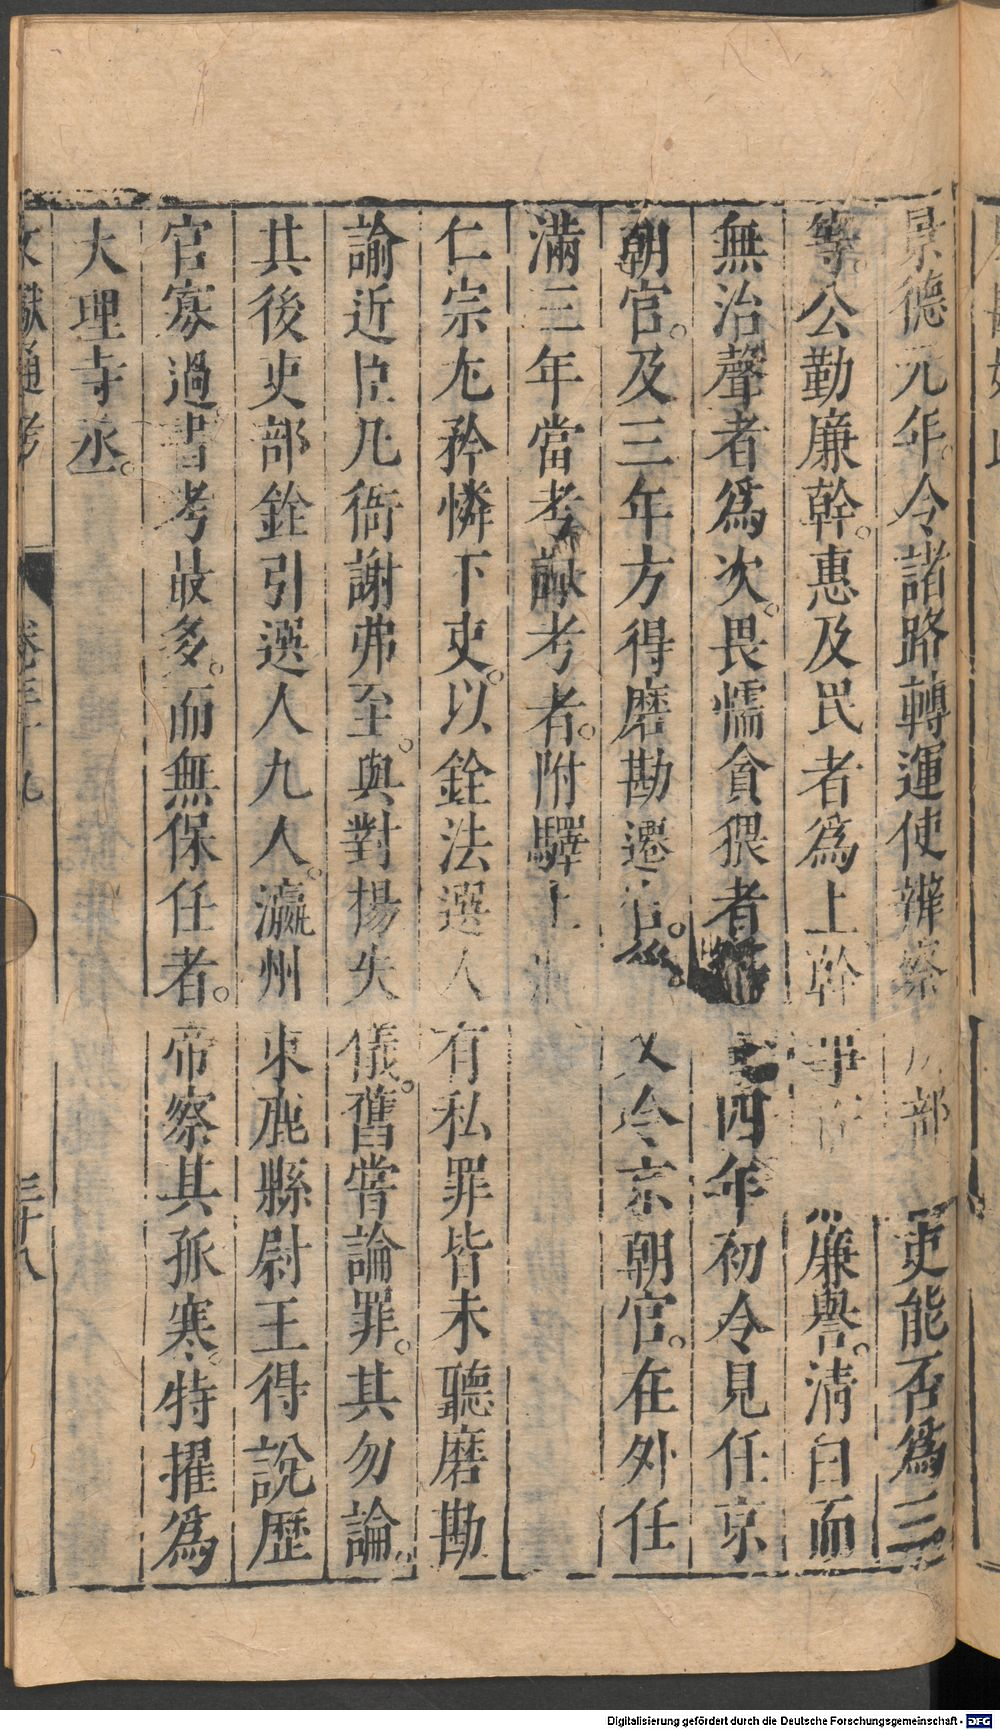 景德元年令諸路轉運使辨察所部官吏能否爲三
等。公勤廉幹。惠及民者爲上幹事而無廉譽。清白而
無治聲者爲次。畏懦貪猥者爲下四年初令見任京
朝官。及三年方得磨勘遷官。又令京朝官。在外任
滿三年當考課考者。附驛上
仁宗尤矜憐下吏。以銓法選人有私罪皆未聽磨勘
諭近臣凡銜謝弗至。與對揚失儀。舊嘗論罪。其勿論。
其後吏部銓引選人九人。瀛州束鹿縣尉王得說歷
官寡過書考最多。而無保任者。帝察其孤寒。特擢爲
大理寺丞。
文獻通考 卷三十九 三十八
Digitalisierung gefördert durch die Deutsche Forschungsgemeinschaft - DFG